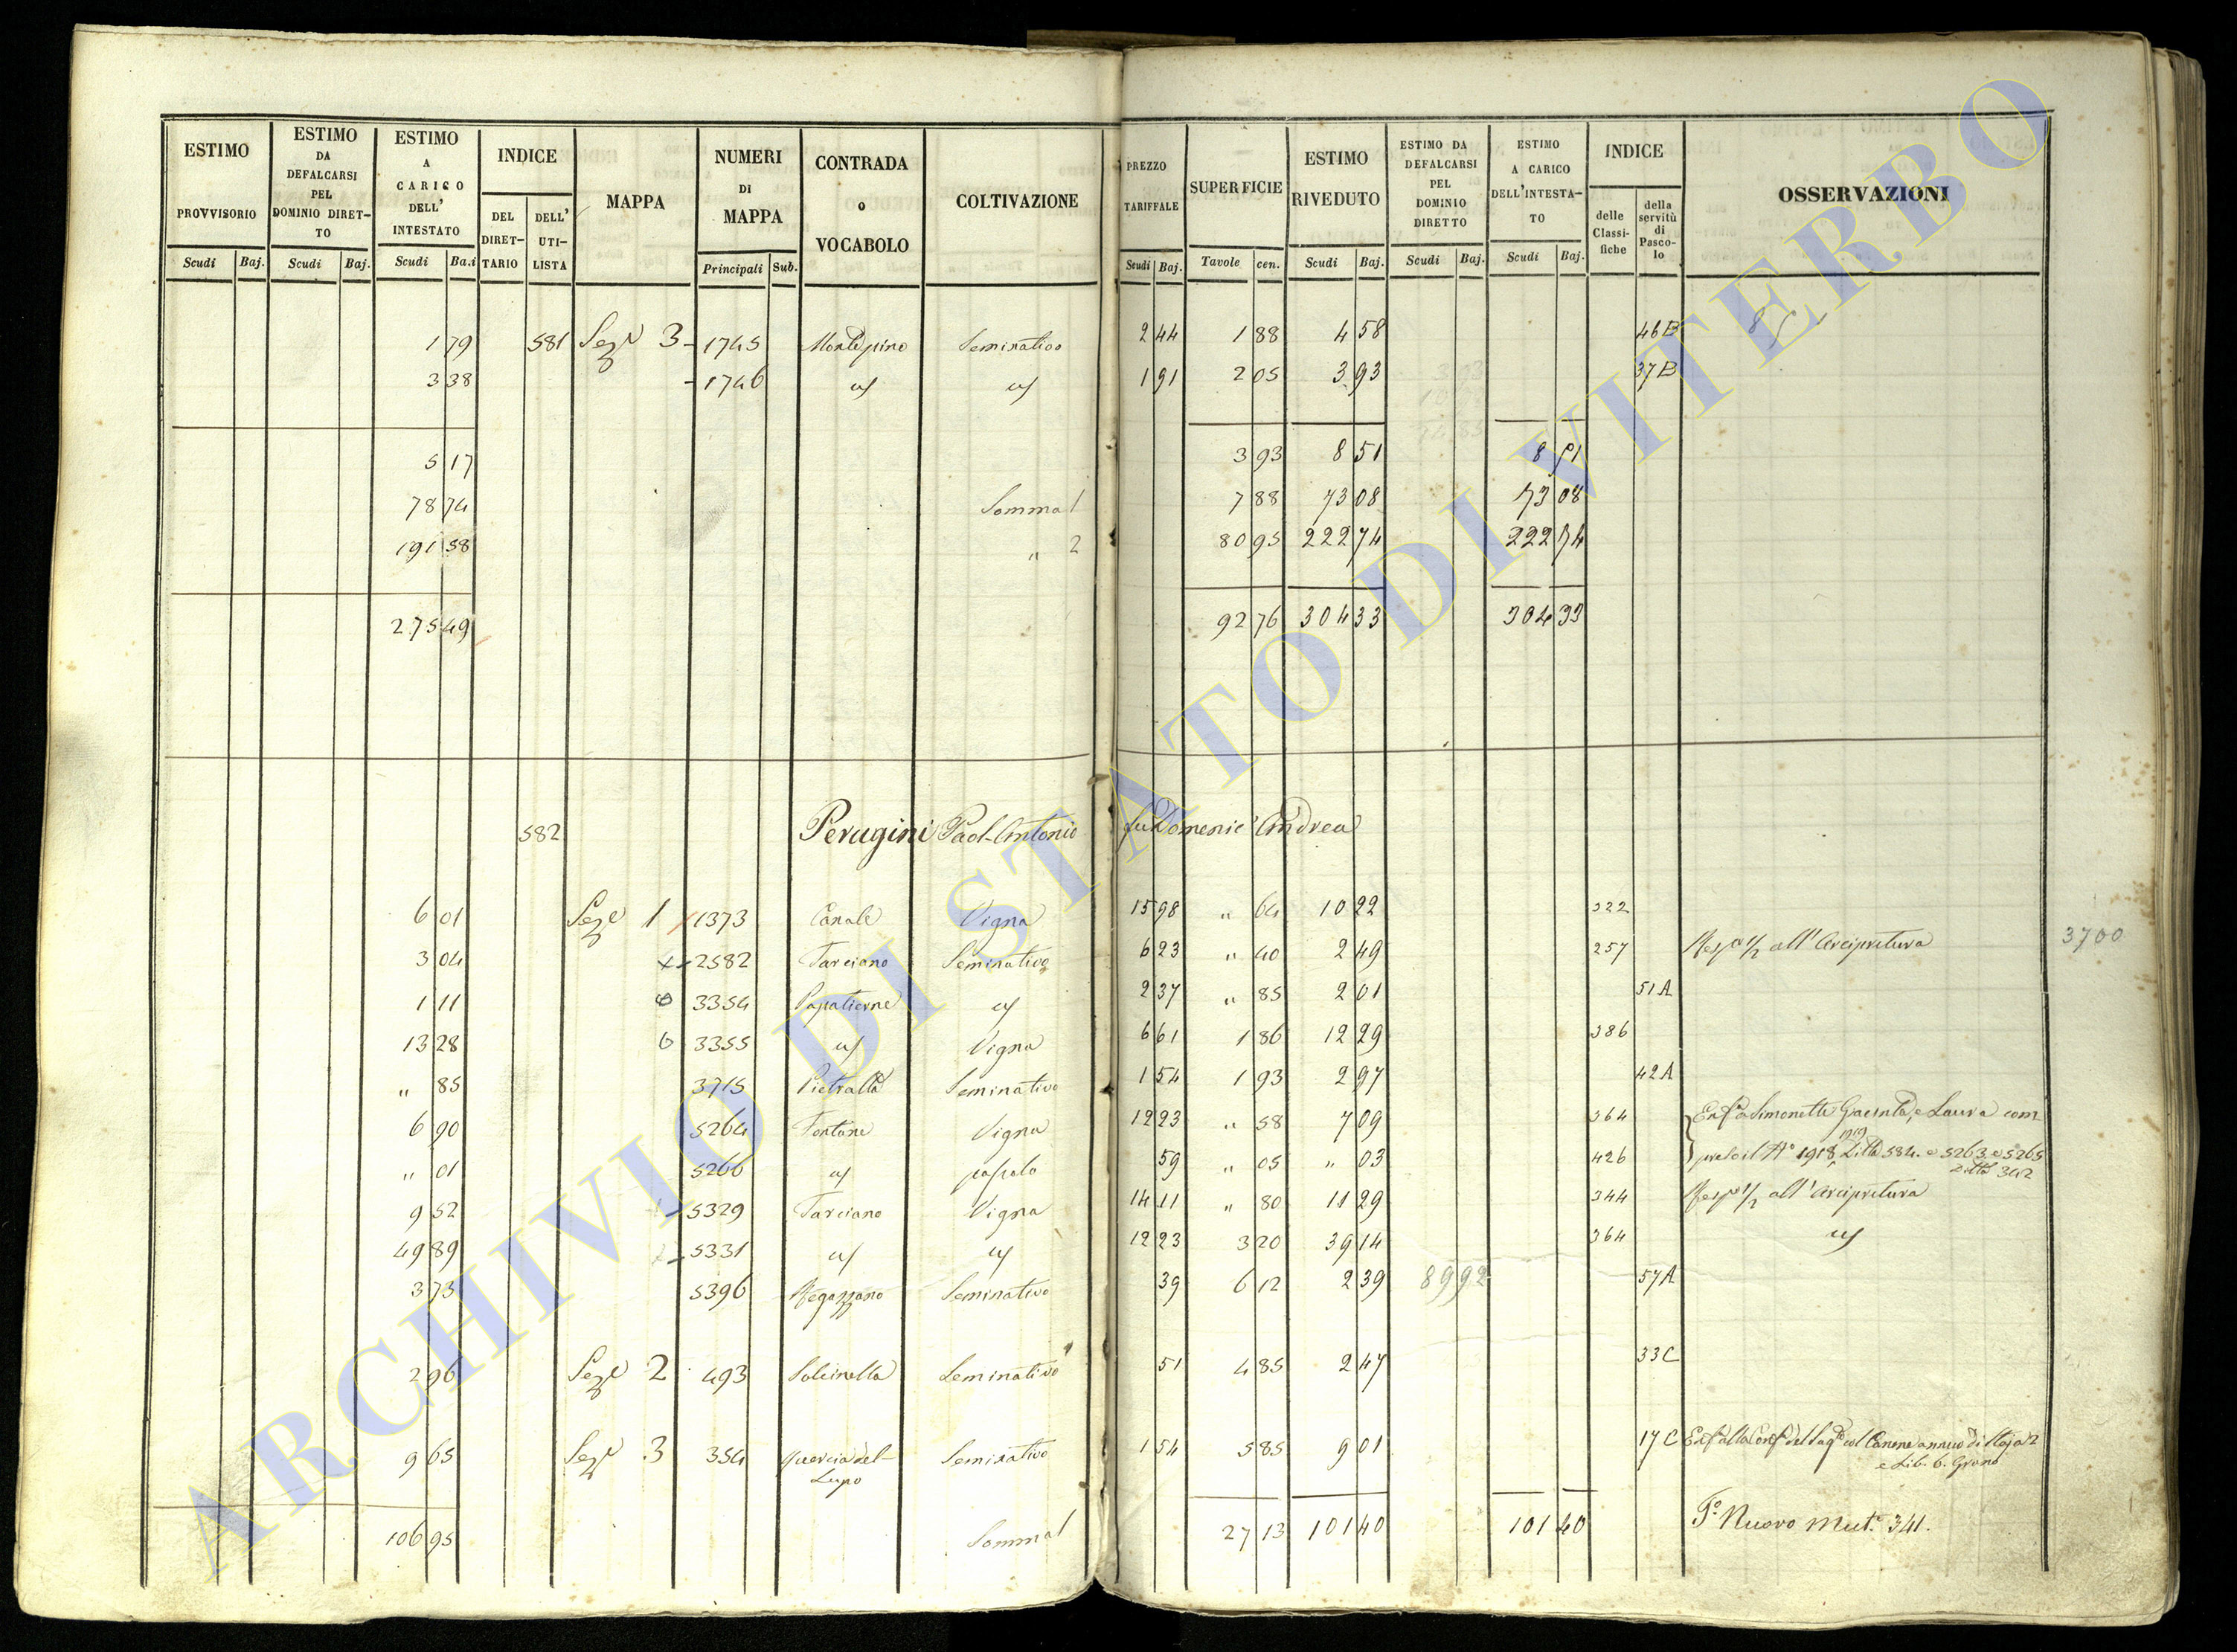 ESTIMO PROVVISORIO | ESTIMO DA DEFALCARSI PEL DOMINIO DIRETTO | ESTIMO A CARICO DELL' INTESTATO | INDICE DEL DIRETTARIO | DELL' UTILISTA | MAPPA | NUMERI DI MAPPA | CONTRADA o VOCABOLO | COLTIVAZIONE | PREZZO TARIFFALE | SUPERFICIE | ESTIMO RIVEDUTO | ESTIMO DA DEFALCARSI PEL DOMINIO DIRETTO | ESTIMO A CARICO DELL'INTESTATO | INDICE delle Classifiche | della servitù di Pascolo | OSSERVAZIONI
Scudi Baj. | Scudi Baj. | Scudi Ba.i | Principali Sub. | Scudi Baj. | Tavole cen. | Scudi Baj. | Scudi Baj. | Scudi Baj.
1 79 581 Sez.e 3 1745 Montepino Seminativo 2 44 1 88 4 58 46 B
3 38 1746 " " 1 91 2 05 3 93 37 B
5 17 3 93 8 51 8 51
78 74 Somma 1 7 88 73 08 73 08
191 58 " 2 80 95 222 74 222 74
275 49 92 76 304 33 304 33
582 Perugini Paol-Antonio fu Domenic'Andrea
6 01 Sez.e 1 1373 Canale Vigna 15 98 " 64 10 22 322
3 04 2582 Tarciano Seminativo 6 23 " 40 2 49 257 all'Arcipretura 3700
1 11 3354 " 2 37 " 85 2 01 51 A
13 28 3355 " Vigna 6 61 1 86 12 29 386
" 85 3715 Seminativo 1 54 1 93 2 97 42 A
6 90 5264 Fontane Vigna 12 23 " 58 7 09 364 Simonetti Giacinta, e Laura com
" 01 5266 " pascolo 59 " 05 " 03 426 1918 1919 Ditta 584. e 5263 e 5265
Ditta 342
9 52 5329 Tarciano Vigna 14 11 " 80 11 29 344 all'Arcipretura
49 89 5331 " " 12 23 3 20 39 14 364 "
3 73 5396 Seminativo 39 6 12 2 39 89 92 57 A
2 96 Sez.e 2 493 Solcinella Seminativo 51 4 85 2 47 33 C
9 65 Sez.e 3 354 Quercia del Lupo Seminativo 1 54 5 85 9 01 17 C col Canone annuo di
e Lib. 6. Grano
106 95 Somma 27 13 101 40 101 40 Nuovo Mut.e 341.
ARCHIVIO DI STATO DI VITERBO